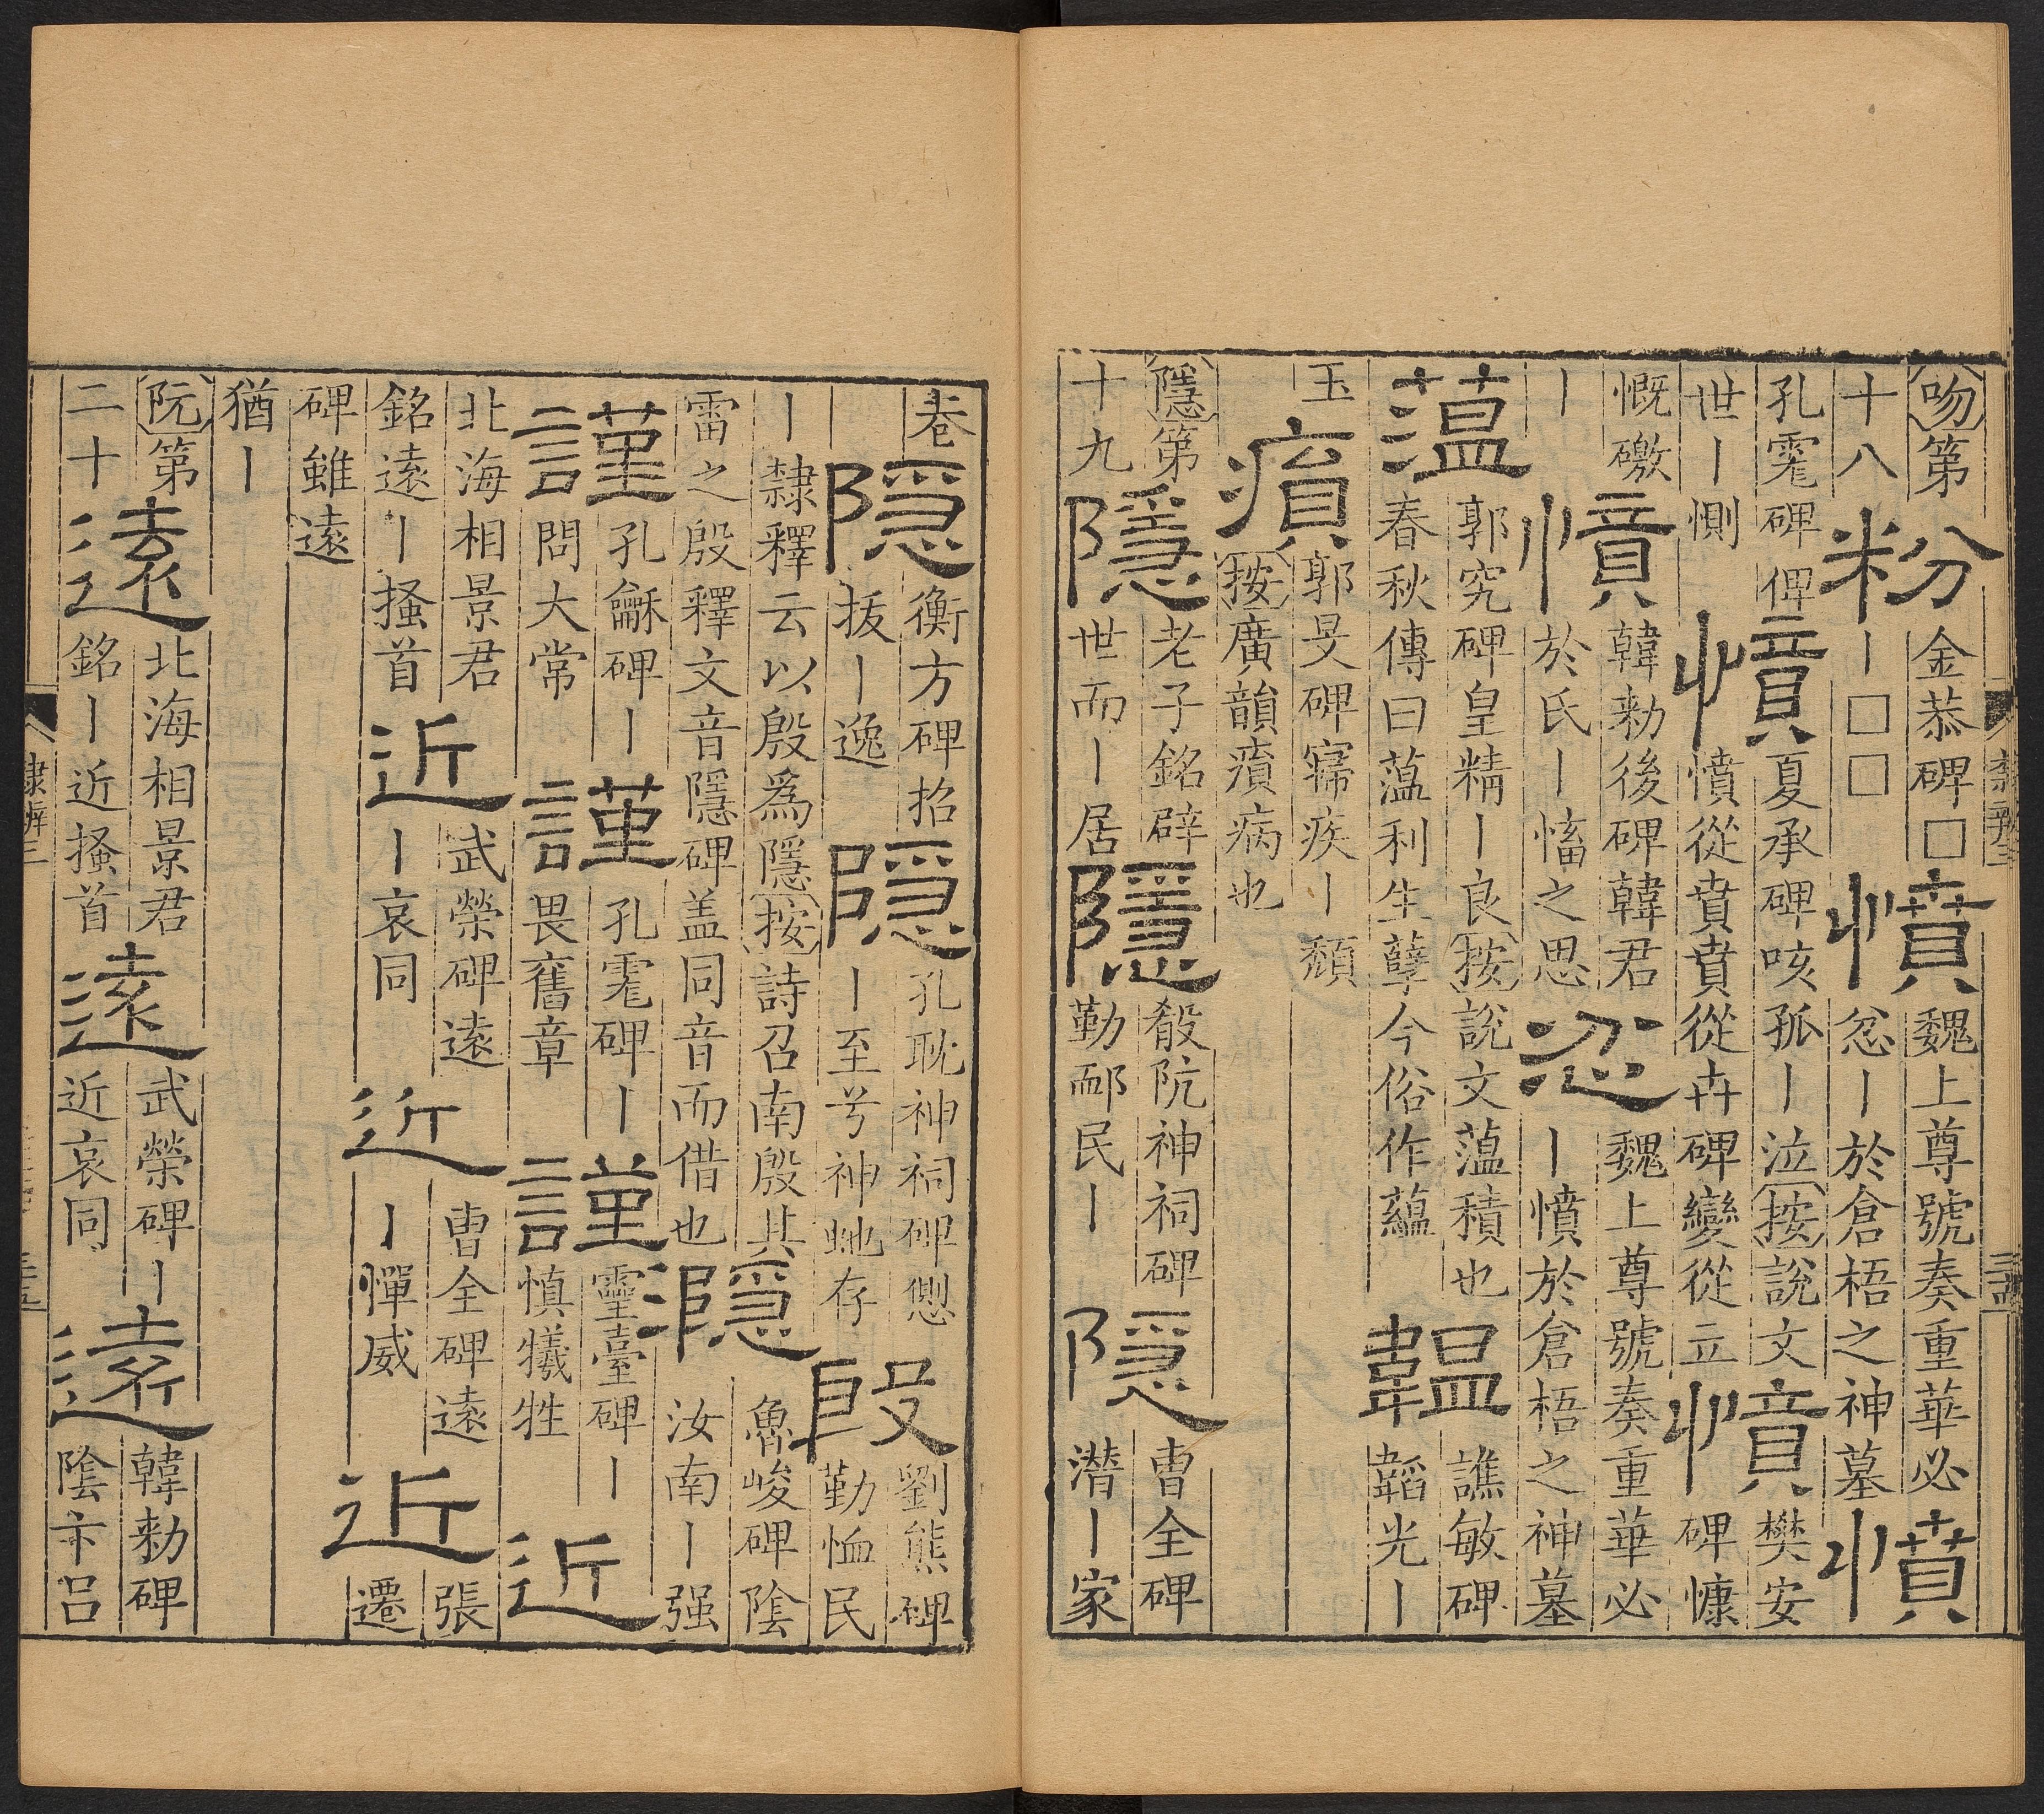 吻第
十八
粉
金恭碑□
丨□□
憤
魏上尊號奏重華必
忿丨於倉梧之神墓
憤
孔宙碑俾
世丨惻
憤
夏承碑咳孤丨泣按說文
憤從賁賁從卉碑變從立
憤
樊安
碑慷
慨礉
丨
憤
韓勑後碑韓君
於氏丨慉之思
忿
魏上尊號奏重華必
丨憤於倉梧之神墓
薀
郭究碑皇精丨良按說文薀積也
春秋傳曰薀利生孽今俗作蘊
韞
譙敏碑
韜光丨
玉
㾰
郭旻碑寢疾丨頹
按廣韻㾰病也
隱第
十九
隱
老子銘辟
世而丨居
隱
殽阬神祠碑
勤郙民丨
隱
曹全碑
潛丨家
隸辨三
巷
隱
衡方碑招
拔丨逸
隱
孔耽神祠碑
丨至兮神虵存
殷
劉熊碑
勤恤民
丨隸釋云以殷爲隱按詩召南殷其
雷之殷釋文音隱碑盖同音而借也
㶏
魯峻碑陰
汝南丨强
謹
孔龢碑丨
問大常
謹
孔宙碑丨
畏舊章
謹
靈臺碑丨
慎犧牲
近
北海相景君
銘遠丨搔首
近
武榮碑遠
丨哀同
近
曹全碑遠
丨憚威
近
張
遷
碑雖遠
猶丨
阮第
二十
遠
北海相景君
銘丨近搔首
遠
武榮碑丨
近哀同
遠
韓勑碑
陰卞呂
隸辨三